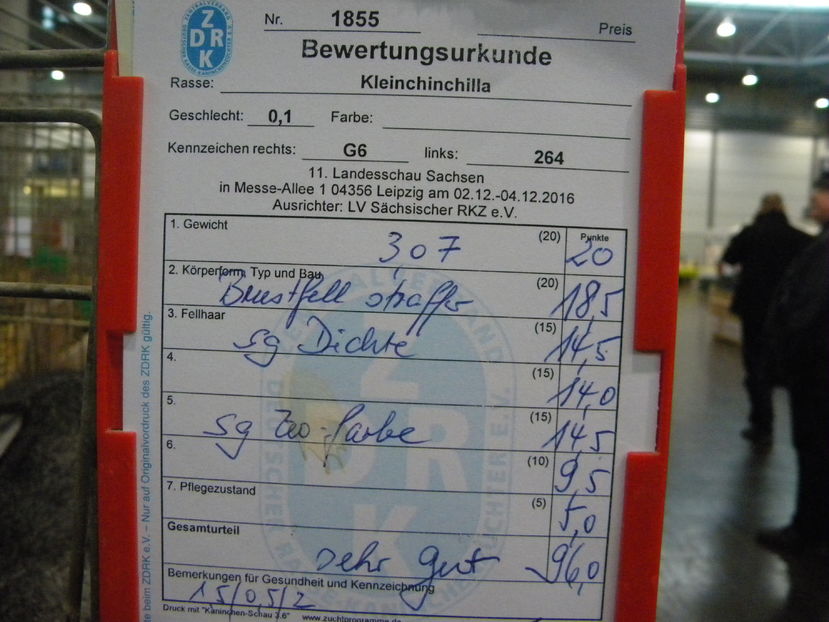 ZDRK
Nr. 1855 Preis
Bewertungsurkunde
Rasse: Kleinchinchilla
Geschlecht: 0,1 Farbe:
Kennzeichen rechts: G6 links: 264
11. Landesschau Sachsen
in Messe-Allee 1 04356 Leipzig am 02.12.-04.12.2016
Ausrichter: LV Sächsischer RKZ e.V.
1. Gewicht 3,07 (20) Punkte 20
2. Körperform, Typ und Bau (20) 18,5
Brustfell straffer
3. Fellhaar (15) 14,5
sg Dichte
4. (15) 14,0
5. (15) 14,5
sg Farbe
6. (10) 9,5
7. Pflegezustand (5) 5,0
Gesamturteil
sehr gut 96,0
Bemerkungen für Gesundheit und Kennzeichnung
1,5/0,5/2
Druck mit "Kaninchen-Schau 3.6" www.zuchtprogramme.de
e beim ZDRK e.V. – Nur auf Originalvordruck des ZDRK gültig.